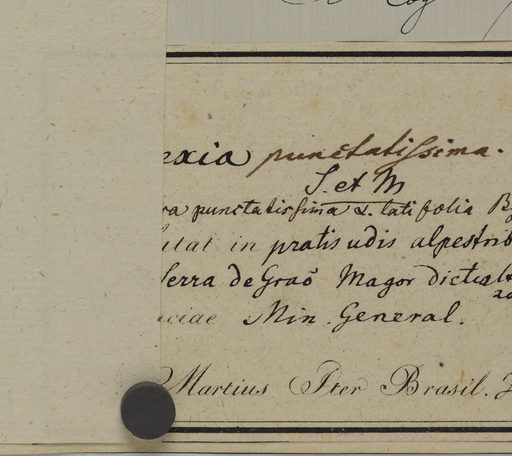 exia punctatissima.
S. et M
va punctatissima α. latifolia
itat in pratis udis alpestrib
Serra de Graõ Magor dictis
ciae Min. General.
Martius Iter Brasil.